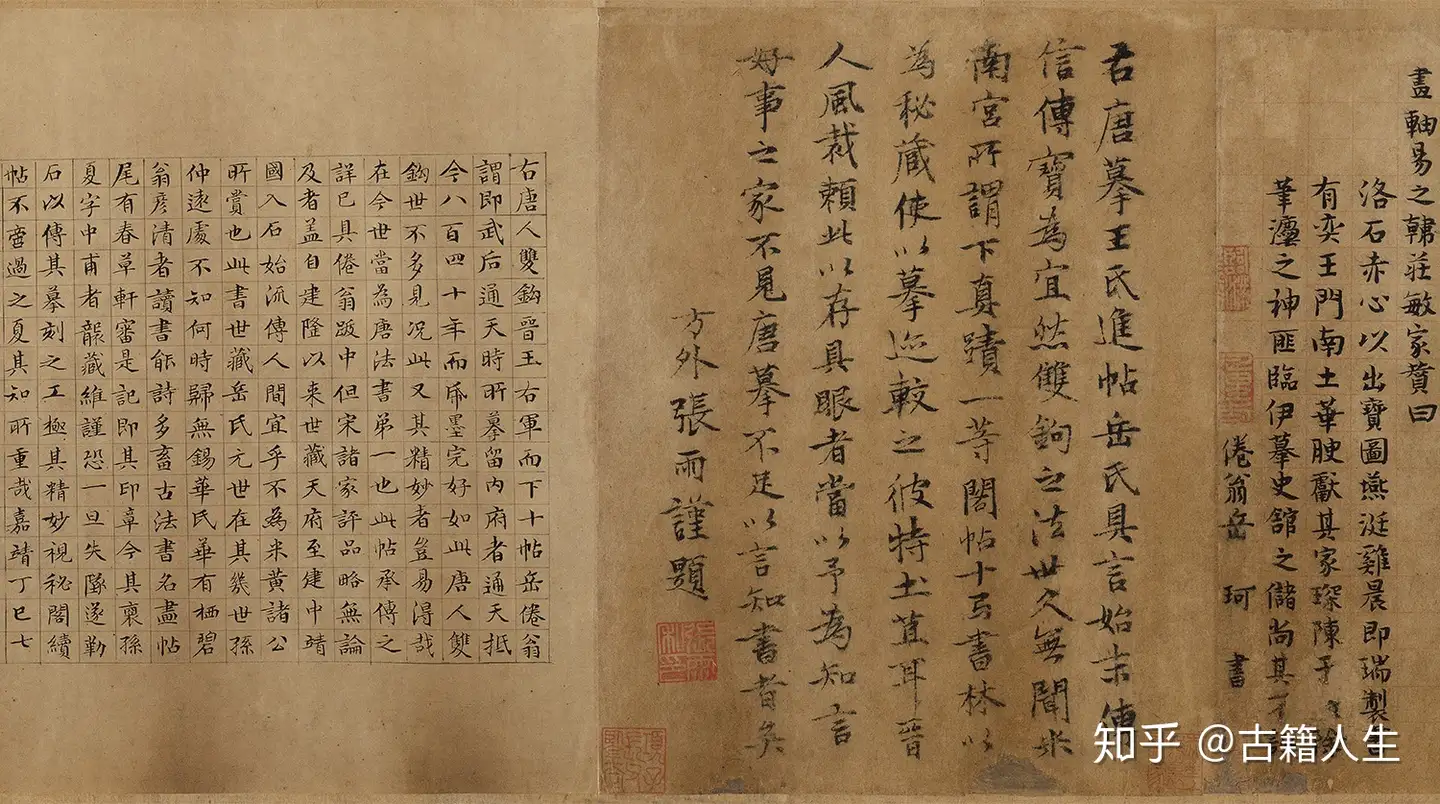 盡軸易之韓莊敏家贊曰
洛石赤心以出寶圖燕涎雞晨即瑞製
有奕王門南土華腴獻其家琛陳于
筆瀍之神匪臨伊摹史館之儲尚其
倦翁岳珂書
右唐摹王氏進帖岳氏具言始末傳
信傳寶為宜然雙鉤之法世久無聞米
南宮所謂下真蹟一等閣帖十弓書林以
為秘藏使以摹迹較之彼特土苴耳晉
人風裁賴此以存具眼者當以予為知言
好事之家不見唐摹不足以言知書者矣
方外張雨謹題
右唐人雙鈎晉王右軍而下十帖岳倦翁
謂即武后通天時所摹留內府者通天抵
今八百四十年而帋墨完好如此唐人雙
鈎世不多見况此又其精妙者豈易得哉
在今世當為唐法書弟一也此帖承傳之
詳已具倦翁跋中但宋諸家評品略無論
及者盖自建隆以来世藏天府至建中靖
國入石始流傳人間宜乎不為米黄諸公
所賞也此書世藏岳氏元世在其幾世孫
仲遠處不知何時歸無錫華氏華有栖碧
翁彦清者讀書能詩多畜古法書名畫帖
尾有春草軒審是記即其印章今其裔孫
夏字中甫者襲藏維謹恐一旦失墜遂勒
石以傳其摹刻之工極其精妙視秘閣續
帖不啻過之夏其知所重哉嘉靖丁巳七
知乎 @古籍人生